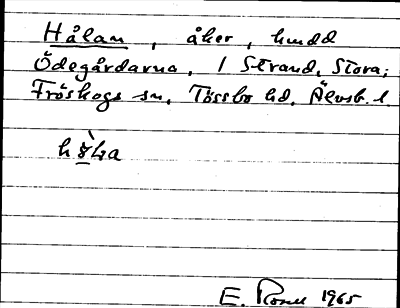 Hålan, åker, hmdd
Ödegårdarna, 1 Strand, Stora;
Fröskogs sn, Tössbo hd, Älvsb. l.
E. 1965